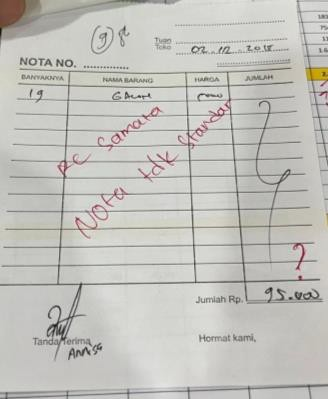 9
Tuan
Toko 02.12.2018
NOTA NO. ..............
BANYAKNYA NAMA BARANG HARGA JUMLAH
19 GALON
RE Samata
Nota tdk Standar
?
Jumlah Rp. 95.000
Tanda Terima Hormat kami,